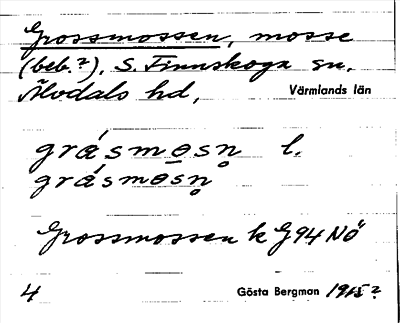 Grossmossen, mosse
(beb.?). S. Finnskoga sn.
Älvdals hd, Värmlands län
grásmɵsn̥ l.
grásmɵsn̥
Grossmossen k G94 NÖ
4 Gösta Bergman 1915?